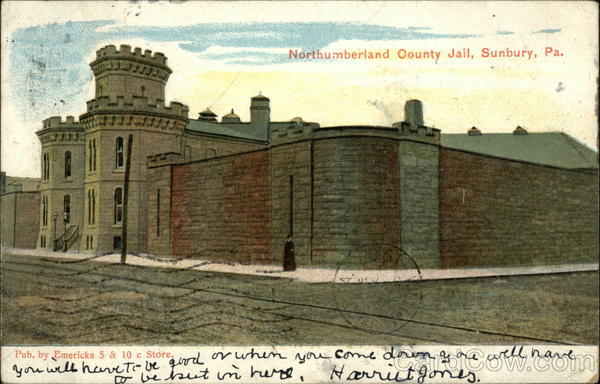 Northumberland County Jail, Sunbury, Pa.
Pub. by Emericks 5 & 10 c Store.
you will have to be good or when you come down you will have
to be put in here. Harriet Jones.
CardCow.com